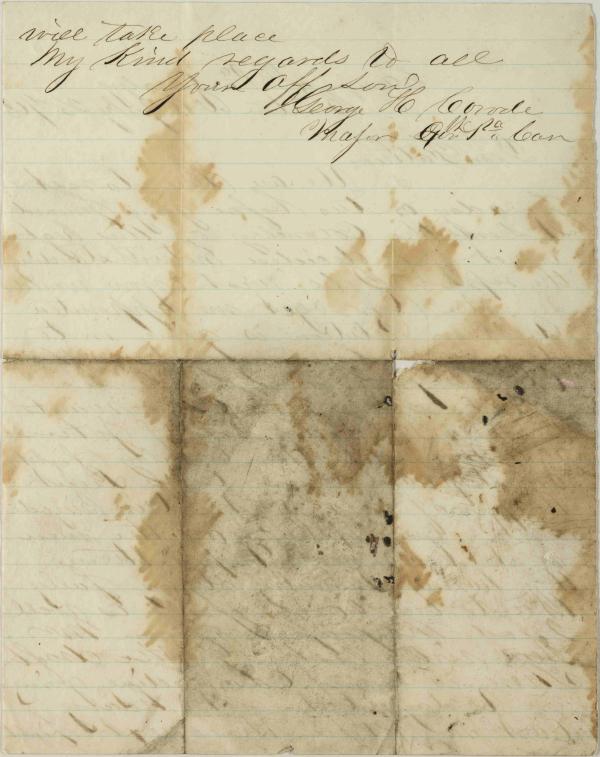 will take place
My Kind regards to all
Your aff son
George H Covode
Major 4th Pa Cav